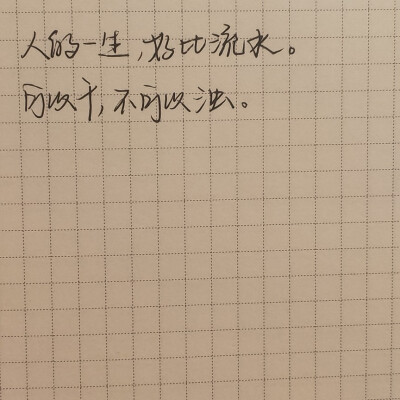 人的一生,好比流水。
可以干,不可以浊。